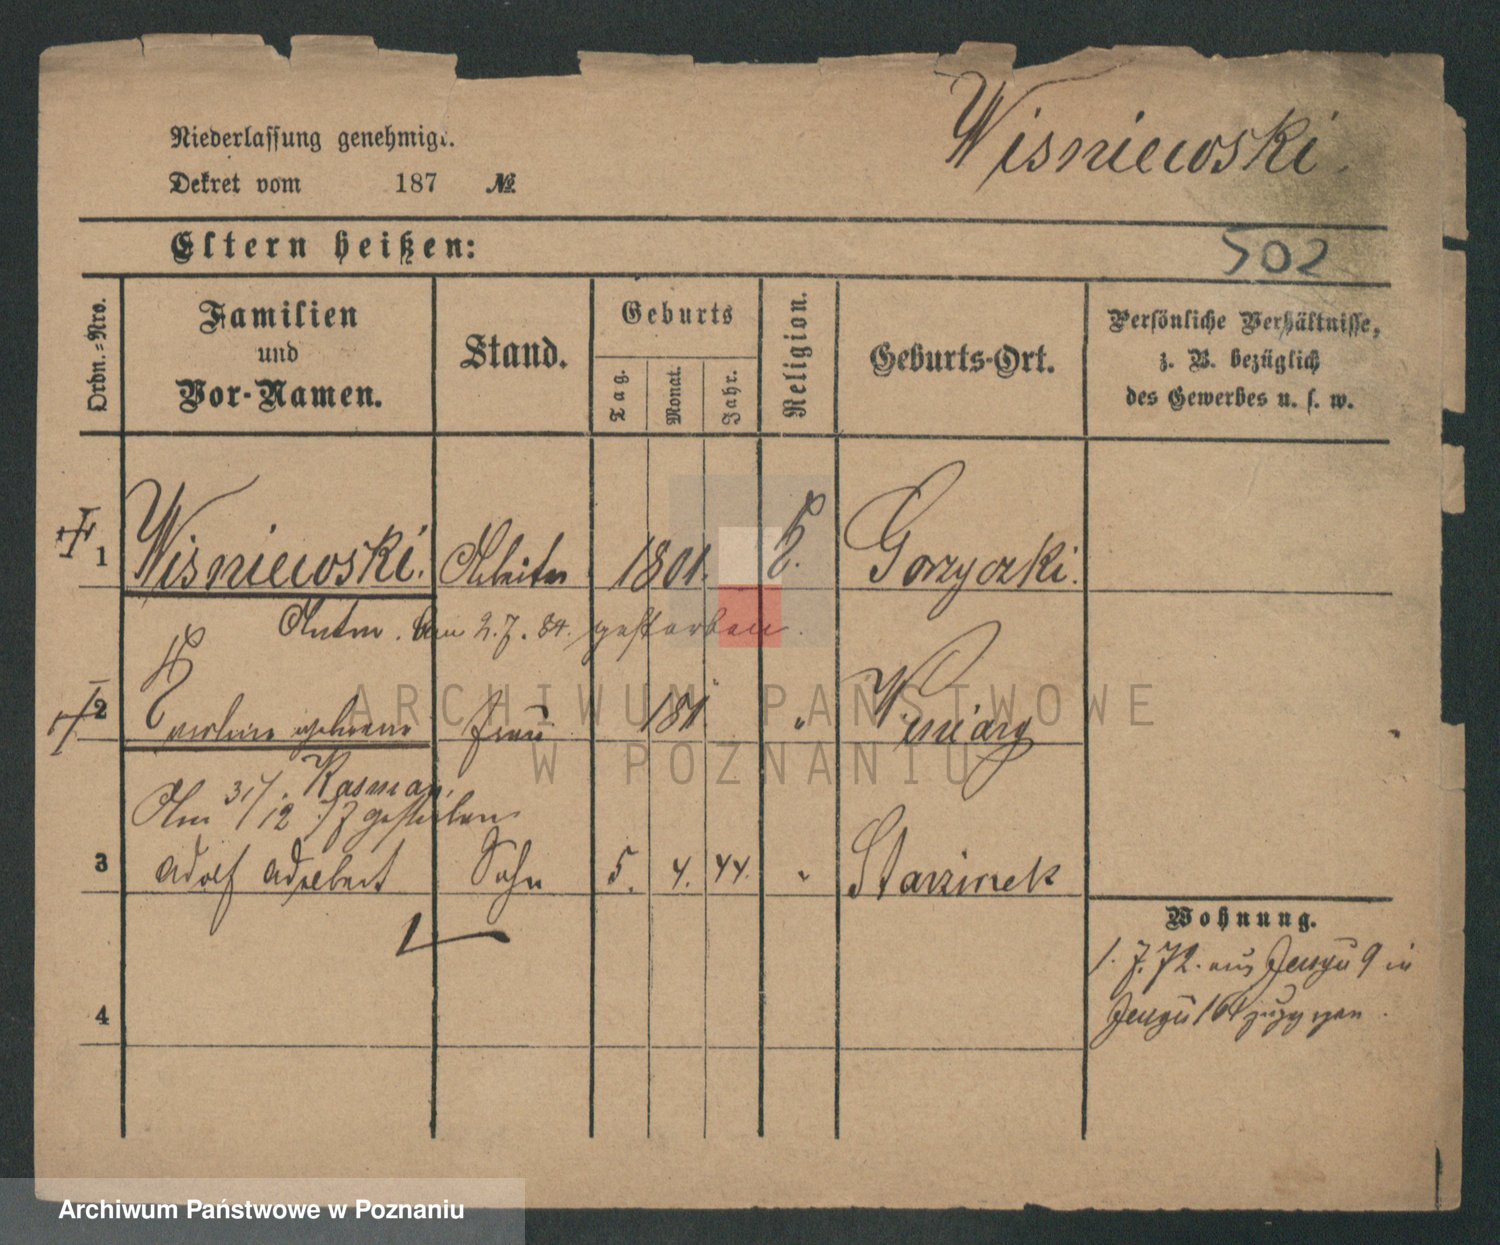 Wisniewski.
Niederlassung genehmigt.
Dekret vom 187 №
Eltern heißen:
502
Ordn.-Nro.
Familien
und
Vor-Namen.
Stand.
Geburts
Tag.
Monat.
Jahr.
Religion.
Geburts-Ort.
Persönliche Verhältnisse,
z. B. bezüglich
des Gewerbes u. s. w.
1 Wisniewski. Arbeiter 1801. Gorzyczki.
Anton. am 2.7.84. gestorben.
2 geborene Frau 181 " Winiary
Kasman.
Am 31/12 77 gestorben
3 Adolf Adalbert Sohn 5. 4. 44. "
Wohnung.
1.7.72. aus 9 in
4
ARCHIWUM PAŃSTWOWE
W POZNANIU
Archiwum Państwowe w Poznaniu